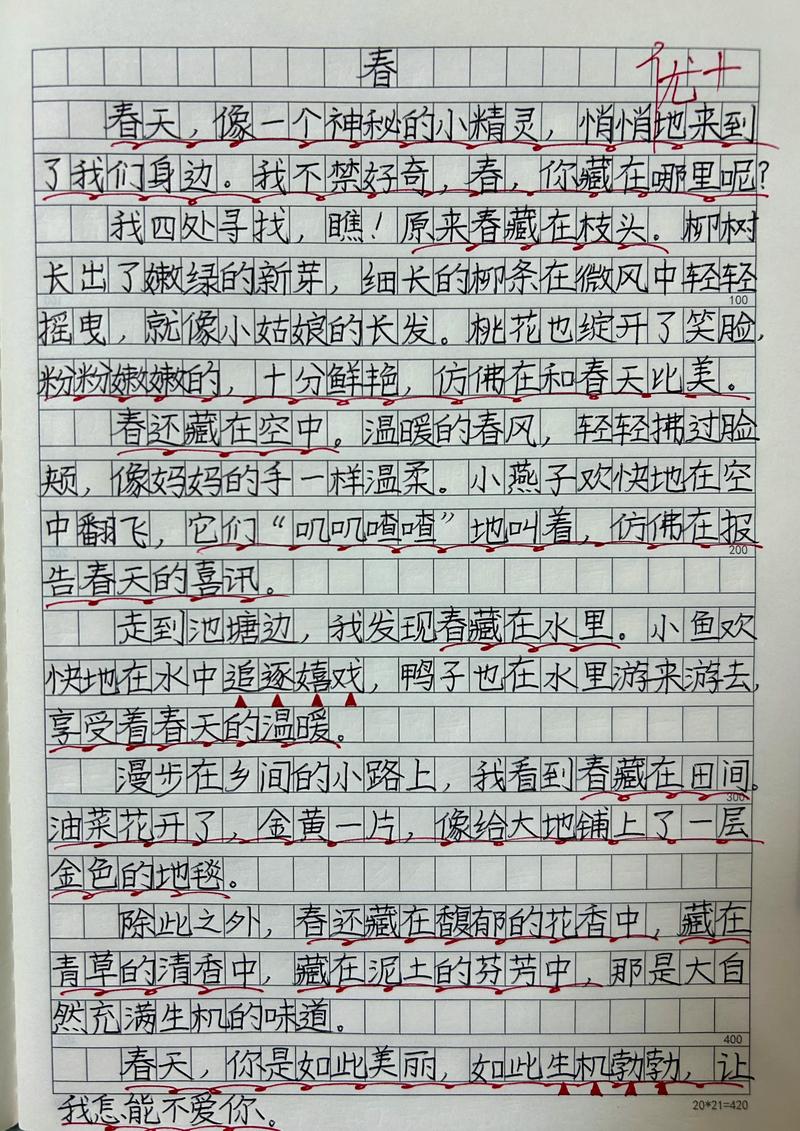 春
优+
春天，像一个神秘的小精灵，悄悄地来到
了我们身边。我不禁好奇，春，你藏在哪里呢？
我四处寻找，瞧！原来春藏在枝头。柳树
长出了嫩绿的新芽，细长的柳条在微风中轻轻
100
摇曳，就像小姑娘的长发。桃花也绽开了笑脸，
粉粉嫩嫩的，十分鲜艳，仿佛在和春天比美。
春还藏在空中。温暖的春风，轻轻拂过脸
颊，像妈妈的手一样温柔。小燕子欢快地在空
中翻飞，它们“叽叽喳喳”地叫着，仿佛在报
200
告春天的喜讯。
走到池塘边，我发现春藏在水里。小鱼欢
快地在水中追逐嬉戏，鸭子也在水里游来游去，
享受着春天的温暖。
漫步在乡间的小路上，我看到春藏在田间。
300
油菜花开了，金黄一片，像给大地铺上了一层
金色的地毯。
除此之外，春还藏在馥郁的花香中，藏在
青草的清香中，藏在泥土的芬芳中，那是大自
然充满生机的味道。
400
春天，你是如此美丽，如此生机勃勃，让
20*21=420
我怎能不爱你。